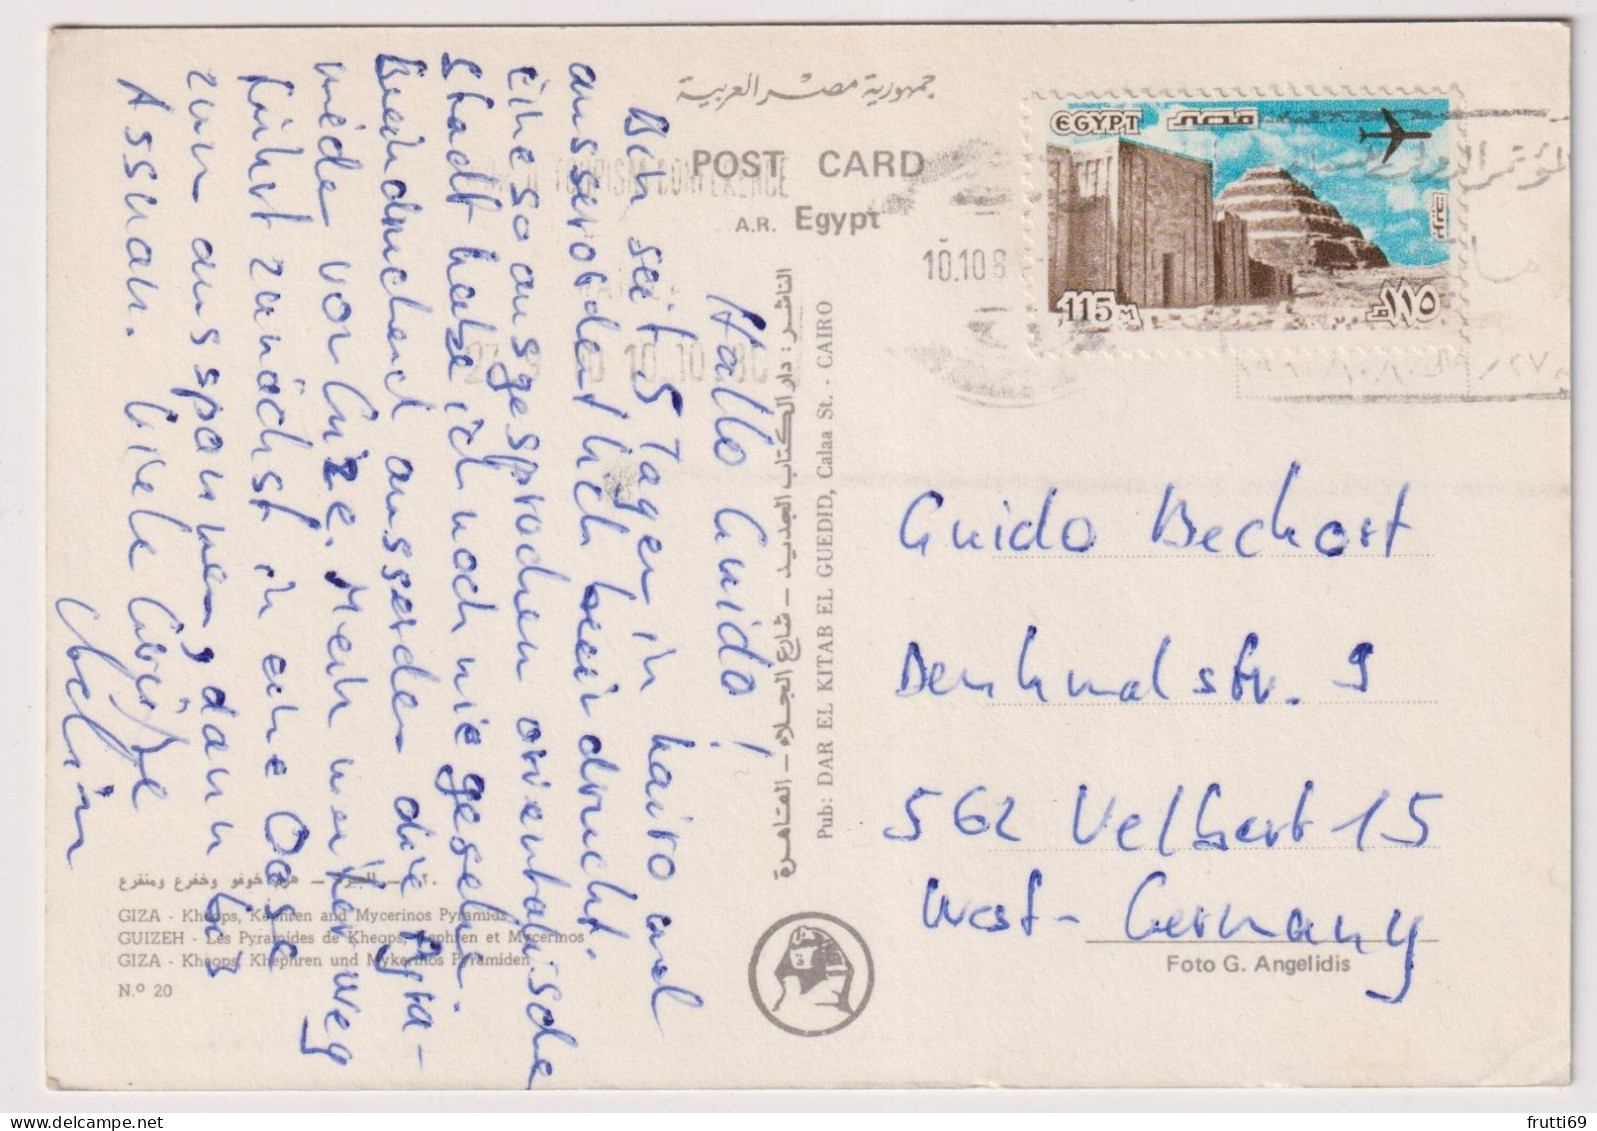 جمهورية مصر العربية
POST CARD
A.R. Egypt
TOURISM CONFERENCE
10.10.80
10.10 8
EGYPT مصر
115 M
١١٥
Hallo Guido!
Bin seit 5 Tagen in Kairo und
ausserordentlich beeindruckt.
Eine so ausgesprochen orientalische
Stadt habe ich noch nie gesehen.
Beeindruckend ausserdem die Pyra-
mide von Gize. Mein weiterer Weg
führt zunächst in eine Oase
zum ausspannen, dann bis
Assuan. Viele Grüße
الناشر: دار الكتاب الجديد - شارع الجلاء - القاهرة
Pub: DAR EL KITAB EL GUEDID, Calaa St. - CAIRO
Guido Beckort
Denkmalstr. 9
562 Velbert 15
West-Germany
Foto G. Angelidis
٢٠ - الجيزة - هرم خوفو وخفرع ومنقرع
GIZA - Kheops, Kephren and Mycerinos Pyramids
GUIZEH - Les Pyramides de Kheops, Kephren et Mycerinos
GIZA - Kheops, Khephren und Mykerinos Pyramiden
N.º 20
frutti69